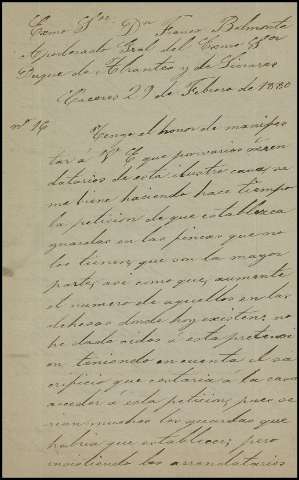 Exmo Sor Dn Franco Belmonte
Apoderado Gral del Exmo Sor
Duque de Abrantes y de Linares
Caceres 29 de Febrero de 1880
nº 16 Tengo el honor de manifes
tar á V E que por varios arren
datarios de esta ilustre casa se
me viene haciendo hace tiempo
la peticion de que establezca
guardas en las fincas que no
los tienen, que son la mayor
parte, asi como que, aumente
el numero de aquellos en las
dehesas donde hoy existen; no
he dado oidos á esta pretensi
on teniendo en cuenta el sa
crificio que costaria á la casa
acceder á esta peticion, pues se
rian muchos los guardas que
habria que establecer; pero
insistiendo los arrendatarios